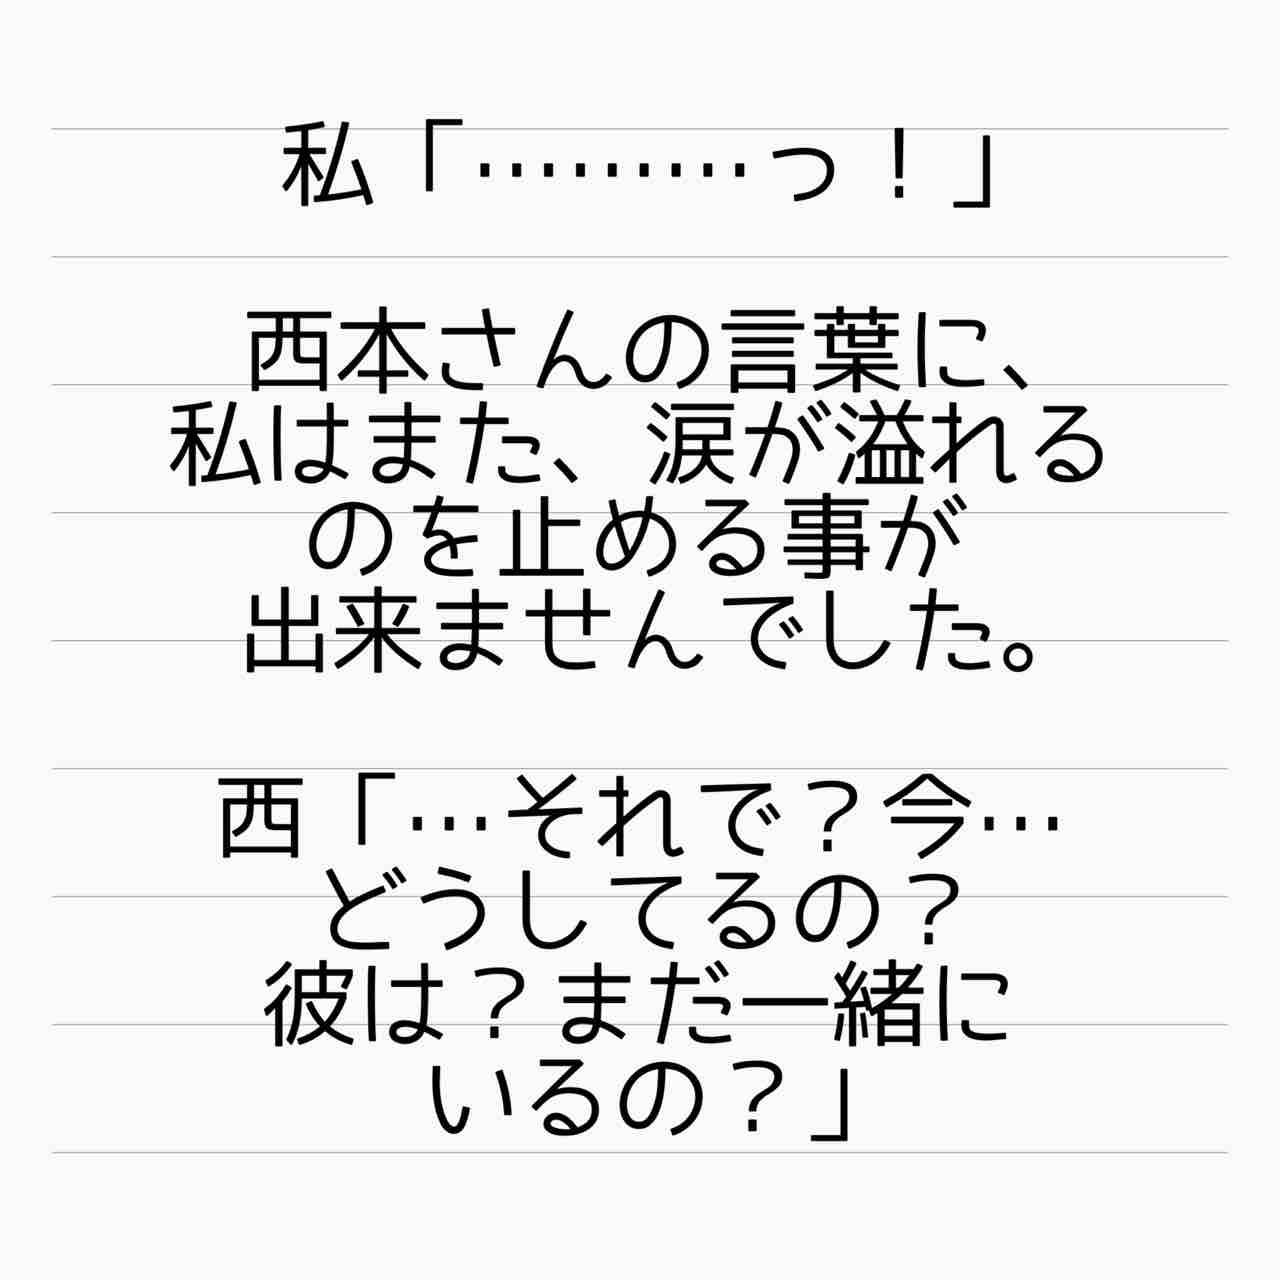 私「………っ！」
西本さんの言葉に、
私はまた、涙が溢れる
のを止める事が
出来ませんでした。
西「…それで？今…
どうしてるの？
彼は？まだ一緒に
いるの？」